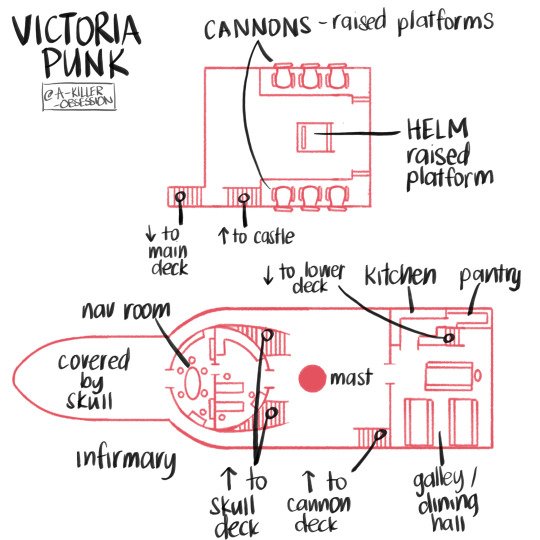 VICTORIA
PUNK
@A-KILLER
-OBSESSION
CANNONS - raised platforms
HELM
raised
platform
↓ to
main
deck
↑ to castle
↓ to lower
deck
kitchen
pantry
nav room
covered
by
skull
mast
infirmary
↑ to
skull
deck
↑ to
cannon
deck
galley/
dining
hall